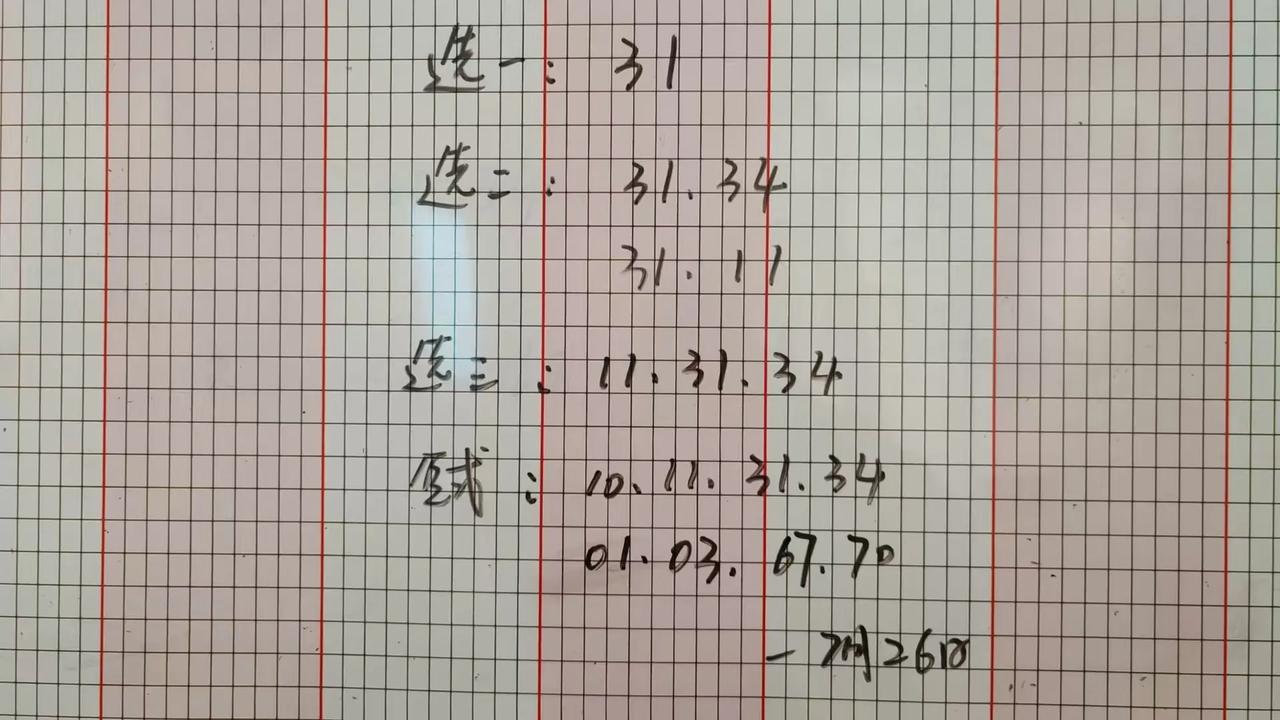 选一: 31
选二: 31.34
31.11
选三: 11.31.34
复式: 10.11.31.34
01.03.67.70